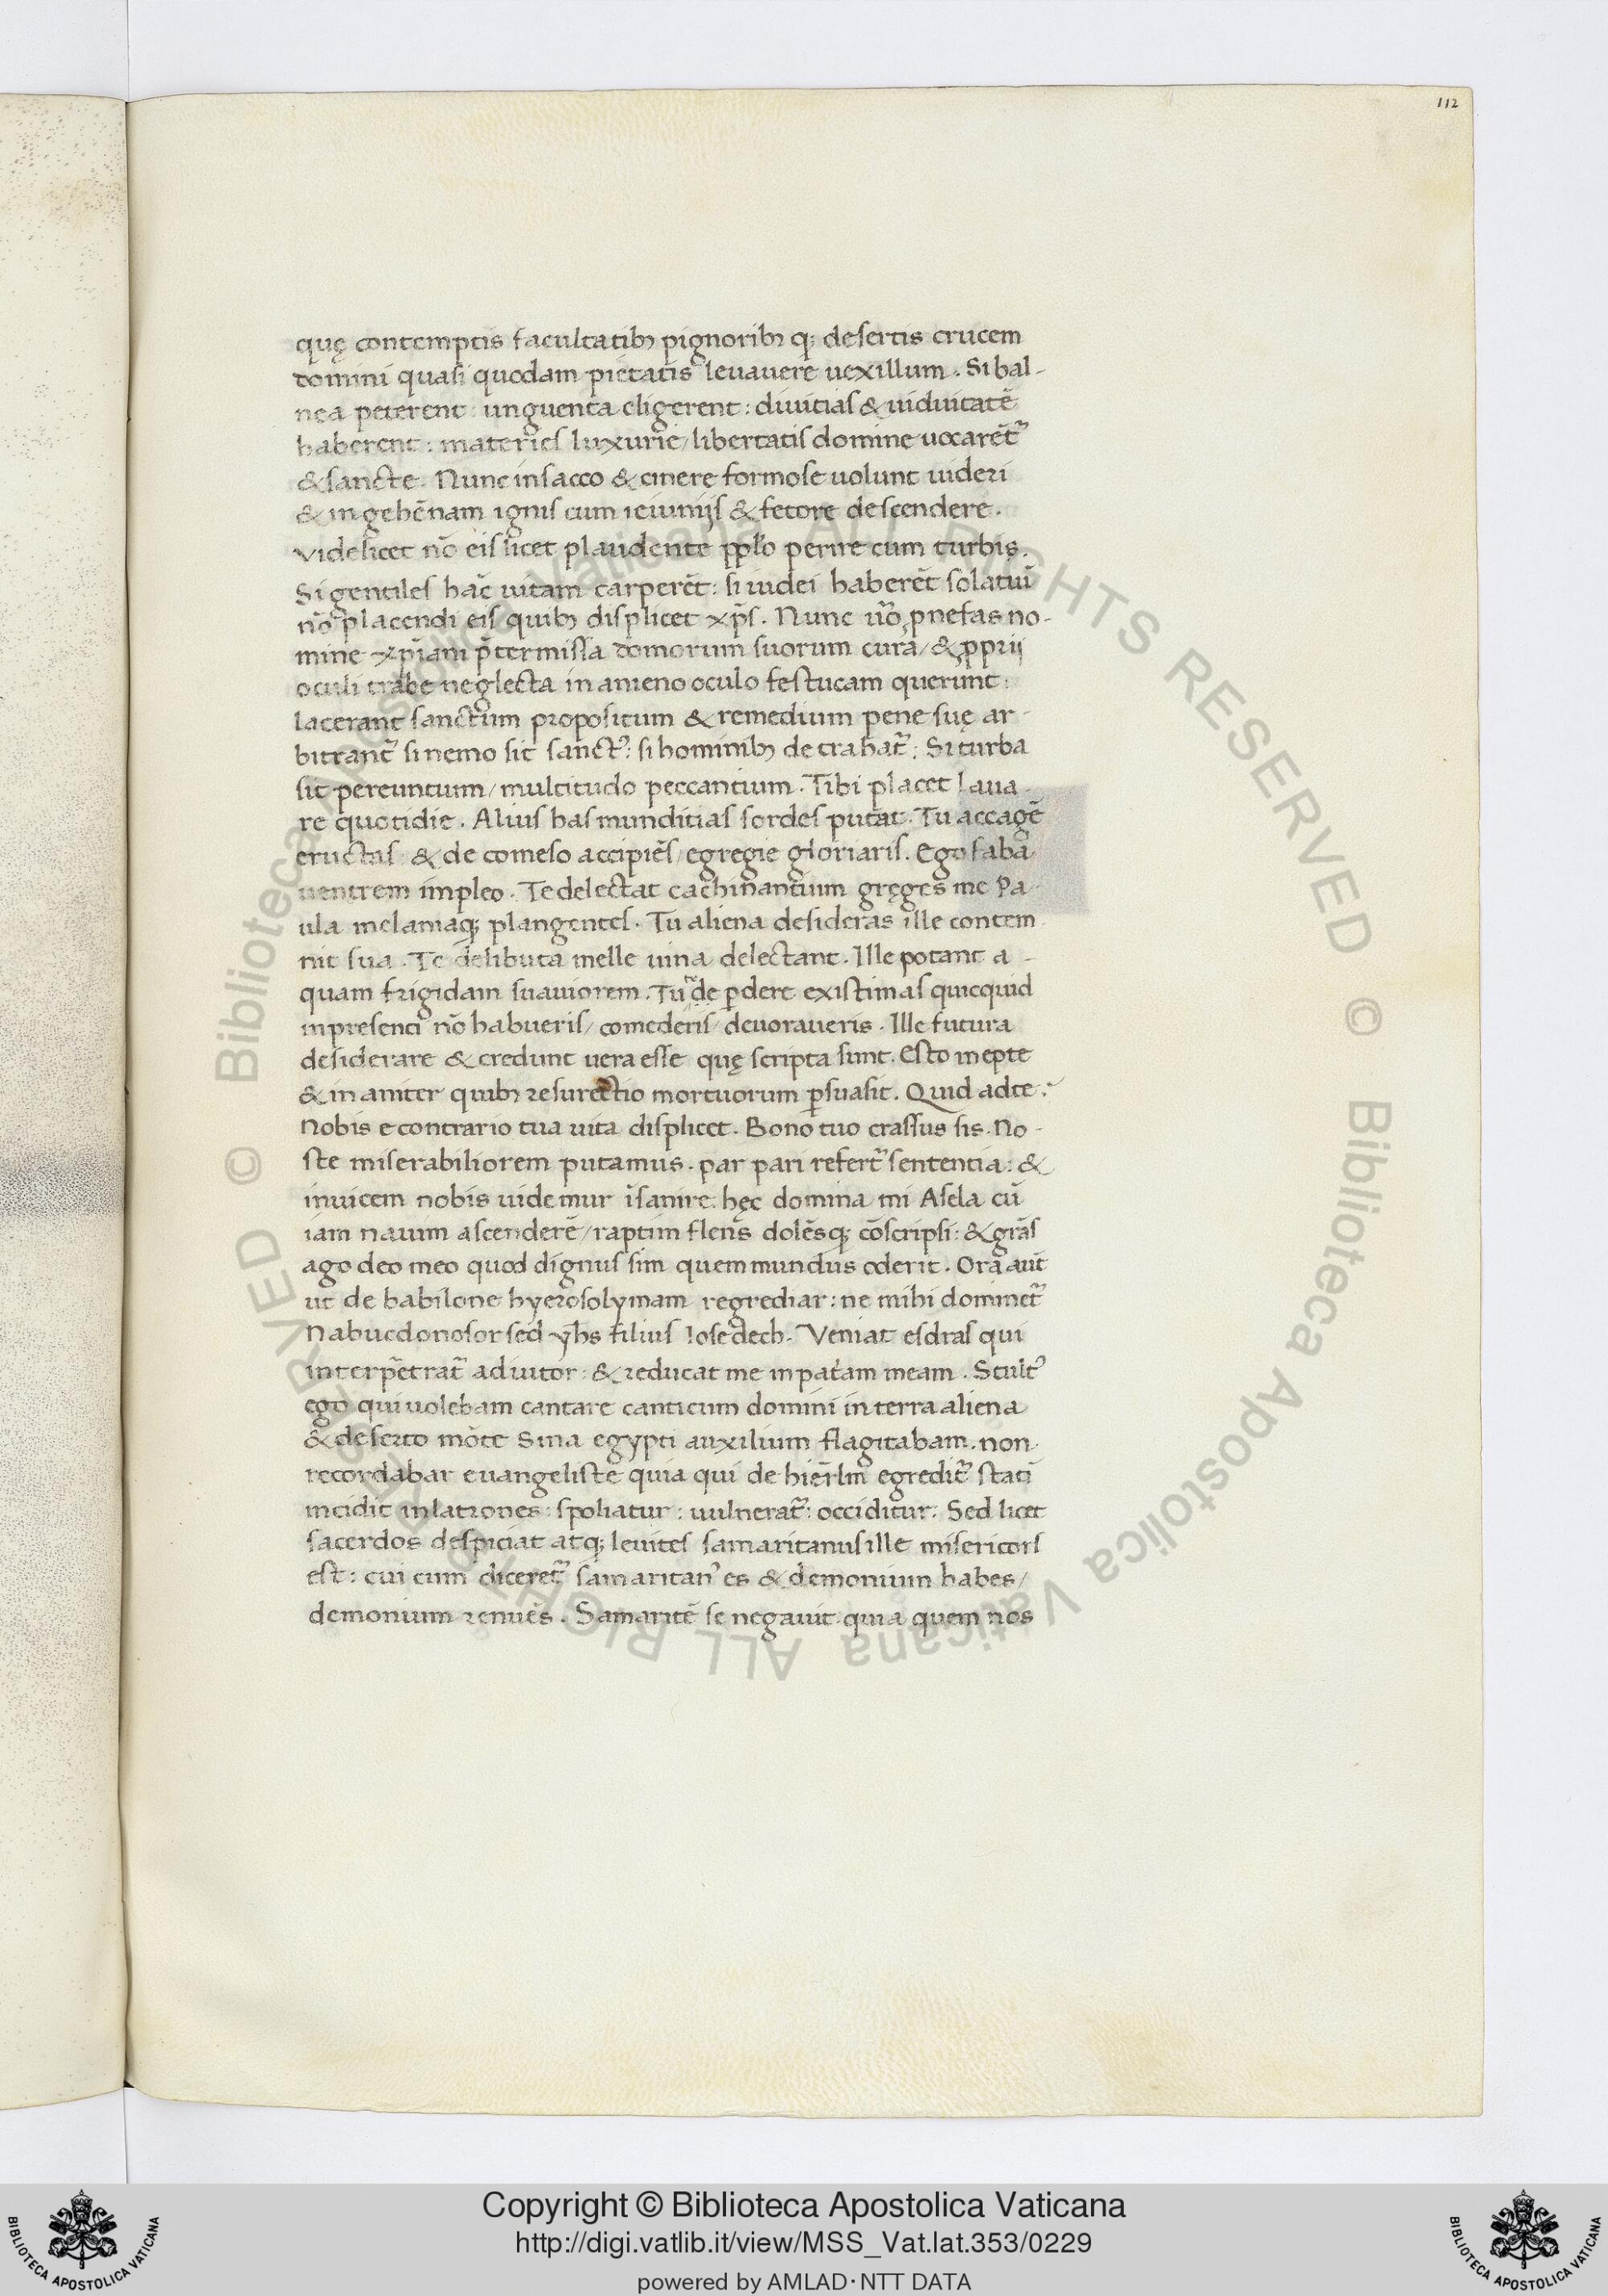 112
quę contemptis facultatibꝫ pignoribꝫ qꝫ desertis crucem
domini quasi quodam pietatis leuauere uexillum. Si bal-
nea peterent: unguenta eligerent: diuitias & uiduitatē
haberent: materies luxurie/ libertatis domine uocarēt᷑
& sancte. Nunc in sacco & cinere formose uolunt uideri
& in gehēnam ignis cum ieiunijs & fetore descendere.
Videlicet nō eis licet plaudente ppl̄o perire cum turbis.
Si gentiles hāc uitam carperēt: si iudei haberēt solatiū
nō placendi eis quibꝫ displicet xp̄s. Nunc ūo ꝓ nefas no-
mine xp̄iani p̄termissa domorum suorum cura/ & ꝓprij
oculi trabe neglecta in amieno oculo festucam querunt:
lacerant sanctum propositum & remedium pene suę ar-
bitrant᷑ si nemo sit sanctꝰ: si hominibꝫ detrahat᷑: Si turba
sit pereuntium/ multitudo peccantium. Tibi placet laua-
re quotidie. Alius has munditias sordes putat. Tu accagē
eructas: & de comeso accipiēs/ egregie gloriaris. Ego faba
uentrem impleo. Te delectat cachinantium gręges me Pa-
ula melaniaqꝫ plangentes. Tu aliena desideras ille contem
nit sua. Te delibuta melle uina delectant. Ille potant a-
quam frigidam suauiorem. Tu de ꝑdere existimas quicquid
in presenti nō habueris/ comederis/ deuoraueris. Ille futura
desiderare & credunt uera esse quę scripta sunt. Esto inepte
& inaniter quibꝫ resurectio mortuorum ꝑsuasit. Quid ad te?
Nobis e contrario tua uita displicet. Bono tuo crassus sis. No-
ste miserabiliorem putamus. par pari refert᷑ sententia: &
inuicem nobis uidemur īsanire. hęc domina mi Asela cū
iam nauim ascenderē/ raptim flens dolēsqꝫ cōscripsi: & grās
ago deo meo quod dignus sim quem mundus oderit. Ora aūt
ut de babilone hyerosolymam regrediar: ne mihi dominet᷑
Nabucdonosor sed yħs filius Iosedech. Veniat esdras qui
interp̄etrat᷑ adiutor: & reducat me in pat̄am meam. Stultꝰ
ego qui uolebam cantare canticum domini in terra aliena
& deserto mōte Sina egypti auxilium flagitabam. non
recordabar euangeliste quia qui de hierl̄m egredit᷑ statī
incidit in latrones: spoliatur: uulnerat᷑: occiditur. Sed licet
sacerdos despiciat atqꝫ leuites samaritanus ille misericors
est: cui cum diceret᷑ samaritanꝰ es & demonium habes/
demonium renuēs. Samaritē se negauit quia quem nos
Copyright © Biblioteca Apostolica Vaticana
http://digi.vatlib.it/view/MSS_Vat.lat.353/0229
powered by AMLAD·NTT DATA
BIBLIOTECA APOSTOLICA VATICANA
BIBLIOTECA APOSTOLICA VATICANA
© Biblioteca Apostolica Vaticana ALL RIGHTS RESERVED
© Biblioteca Apostolica Vaticana ALL RIGHTS RESERVED